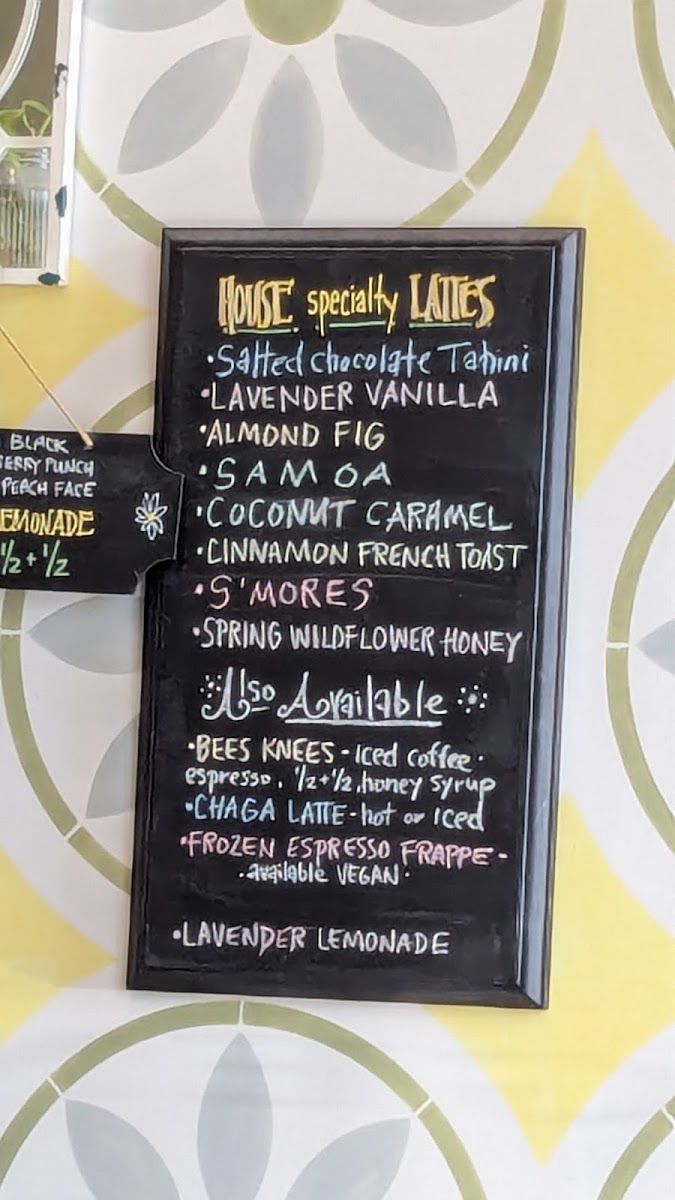 HOUSE specialty LATTES
•Salted chocolate Tahini
•LAVENDER VANILLA
•ALMOND FIG
•SAMOA
•COCONUT CARAMEL
•CINNAMON FRENCH TOAST
•S'MORES
•SPRING WILDFLOWER HONEY
Also Available
•BEES KNEES - iced coffee •
espresso, ½+½, honey syrup
•CHAGA LATTE - hot or iced
•FROZEN ESPRESSO FRAPPE -
•available VEGAN•
•LAVENDER LEMONADE
BLACK
PUNCH
PEACH FACE
EMONADE
½+½